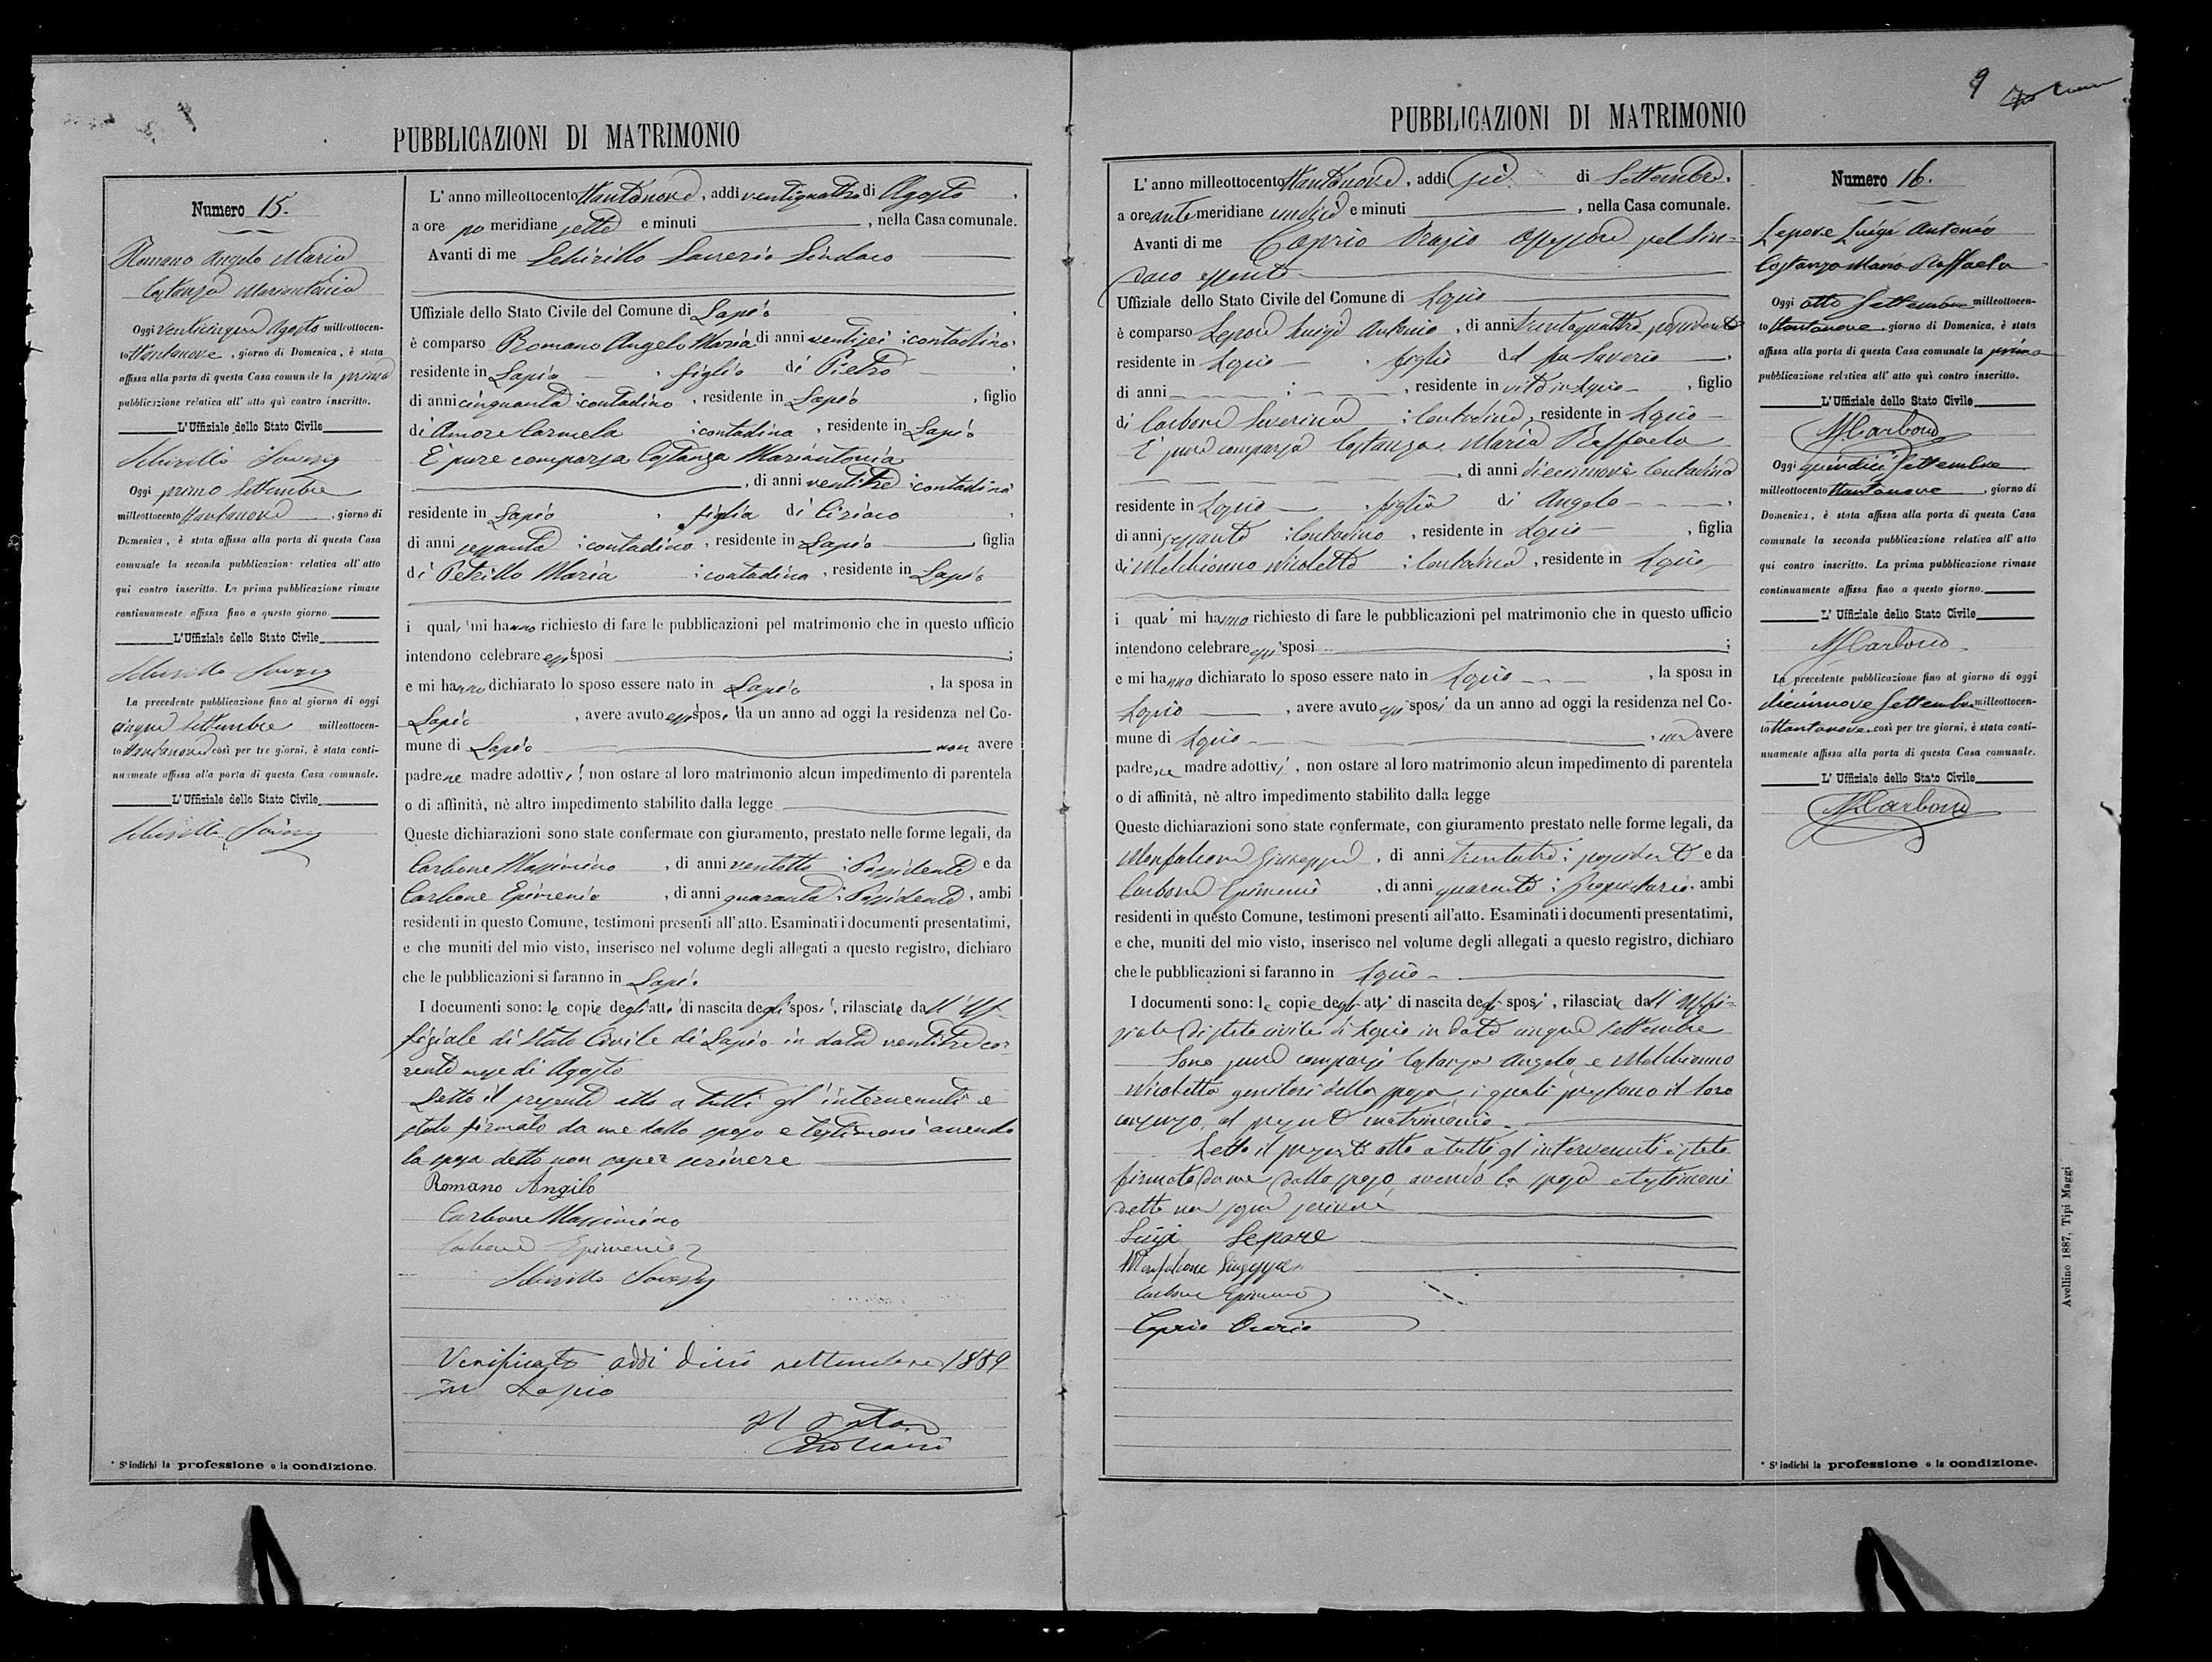 PUBBLICAZIONI DI MATRIMONIO
Numero 15.
Romano Angelo Maria
Costanza Mariantonia
Oggi venticinque Agosto milleottocen-
to ottantanove, giorno di Domenica, è stata
affissa alla porta di questa Casa comunale la prima
pubblicazione relativa all' atto quì contro inscritto.
L'Uffiziale dello Stato Civile
Schirillo
Oggi primo Settembre
milleottocento ottantanove, giorno di
Domenica, è stata affissa alla porta di questa Casa
comunale la seconda pubblicazione relativa all' atto
quì contro inscritto. La prima pubblicazione rimase
continuamente affissa fino a questo giorno.
L'Uffiziale dello Stato Civile
Schirillo
La precedente pubblicazione fino al giorno di oggi
cinque Settembre milleottocen-
to ottantanove così per tre giorni, è stata conti-
nuamente affissa alla porta di questa Casa comunale.
L'Uffiziale dello Stato Civile
Schirillo
* S'indichi la professione o la condizione.
L' anno milleottocento ottantanove, addì ventiquattro di Agosto,
a ore po meridiane sette e minuti , nella Casa comunale.
Avanti di me Schirillo Saverio Sindaco
Uffiziale dello Stato Civile del Comune di Lapio
è comparso Romano Angelo Maria di anni ventisei contadino
residente in Lapio, figlio di Pietro
di anni cinquanta contadino, residente in Lapio, figlio
di Amore Carmela contadina, residente in Lapio
È pure comparsa Costanza Mariantonia
, di anni ventitre contadina
residente in Lapio, figlia di Ciriaco
di anni sessanta contadino, residente in Lapio, figlia
di Petrillo Maria contadina, residente in Lapio
i quali mi hanno richiesto di fare le pubblicazioni pel matrimonio che in questo ufficio
intendono celebrare essi sposi ;
e mi hanno dichiarato lo sposo essere nato in Lapio, la sposa in
Lapio, avere avuto essi sposi da un anno ad oggi la residenza nel Co-
mune di Lapio non avere
padre ne madre adottivi, non ostare al loro matrimonio alcun impedimento di parentela
o di affinità, nè altro impedimento stabilito dalla legge
Queste dichiarazioni sono state confermate con giuramento, prestato nelle forme legali, da
Carbone Massimino, di anni ventotto Possidente e da
Carbone Epimenio, di anni quaranta Possidente, ambi
residenti in questo Comune, testimoni presenti all'atto. Esaminati i documenti presentatimi,
e che muniti del mio visto, inserisco nel volume degli allegati a questo registro, dichiaro
che le pubblicazioni si faranno in Lapio
I documenti sono: le copie degli atti di nascita degli sposi, rilasciate dall'Uf-
fiziale di Stato Civile di Lapio in data ventitre cor-
rente mese di Agosto
Letto il presente atto a tutti gl'intervenuti è
stato firmato da me dallo sposo e testimoni avendo
la sposa detto non saper scrivere
Romano Angilo
Carbone Massimino
Carbone Epimenio
Schirillo
Verificato addi dieci settembre 1889
in Lapio
9
PUBBLICAZIONI DI MATRIMONIO
L' anno milleottocento ottantanove, addì sei di Settembre,
a ore ante meridiane undici e minuti , nella Casa comunale.
Avanti di me Caprio Orazio Assessore pel Sin-
daco assente
Uffiziale dello Stato Civile del Comune di Lapio
è comparso Lepore Luigi Antonio, di anni trentaquattro, possidente
residente in Lapio, figlio del fu Saverio
di anni , residente in vita in Lapio, figlio
di Carbone Severina Contadina, residente in Lapio
È pure comparsa Costanza Maria Raffaela
, di anni diecinnove Contadina
residente in Lapio, figlia di Angelo
di anni sessanta Contadino, residente in Lapio, figlia
di Melchionno Nicoletta Contadina, residente in Lapio,
i quali mi hanno richiesto di fare le pubblicazioni pel matrimonio che in questo ufficio
intendono celebrare essi sposi ;
e mi hanno dichiarato lo sposo essere nato in Lapio, la sposa in
Lapio, avere avuto essi sposi da un anno ad oggi la residenza nel Co-
mune di Lapio, non avere
padre ne madre adottivi, non ostare al loro matrimonio alcun impedimento di parentela
o di affinità, nè altro impedimento stabilito dalla legge
Queste dichiarazioni sono state confermate, con giuramento prestato nelle forme legali, da
Monfalcone Giuseppe, di anni trentatre possidente e da
Carbone Epimenio, di anni quaranta Proprietario, ambi
residenti in questo Comune, testimoni presenti all'atto. Esaminati i documenti presentatimi,
e che, muniti del mio visto, inserisco nel volume degli allegati a questo registro, dichiaro
che le pubblicazioni si faranno in Lapio
I documenti sono: le copie degli atti di nascita degli sposi, rilasciate dall'Uffi-
ziale di stato civile di Lapio in data cinque settembre
Sono pure comparsi Costanza Angelo e Melchionno
Nicoletta genitori della sposa, i quali prestano il loro
consenso al presente matrimonio
Letto il presente atto a tutti gl'intervenuti è stato
firmato da me dallo sposo, avendo la sposa e testimoni
detto non saper scrivere
Luigi Lepore
Monfalcone Giuseppe
Carbone Epimenio
Caprio Orazio
Numero 16.
Lepore Luigi Antonio
Costanza Maria Raffaela
Oggi otto Settembre milleottocen-
to ottantanove, giorno di Domenica, è stata
affissa alla porta di questa Casa comunale la prima
pubblicazione relativa all' atto quì contro inscritto.
L'Uffiziale dello Stato Civile
MCarbone
Oggi quindici Settembre
milleottocento ottantanove, giorno di
Domenica, è stata affissa alla porta di questa Casa
comunale la seconda pubblicazione relativa all' atto
qui contro inscritto. La prima pubblicazione rimase
continuamente affissa fino a questo giorno.
L' Uffiziale dello Stato Civile
MCarbone
La precedente pubblicazione fino al giorno di oggi
diecinnove Settembre milleottocen-
to ottantanove, così per tre giorni, è stata conti-
nuamente affissa alla porta di questa Casa comunale.
L' Uffiziale dello Stato Civile
MCarbone
* S'indichi la professione o la condizione.
Avellino 1887, Tipi Maggi